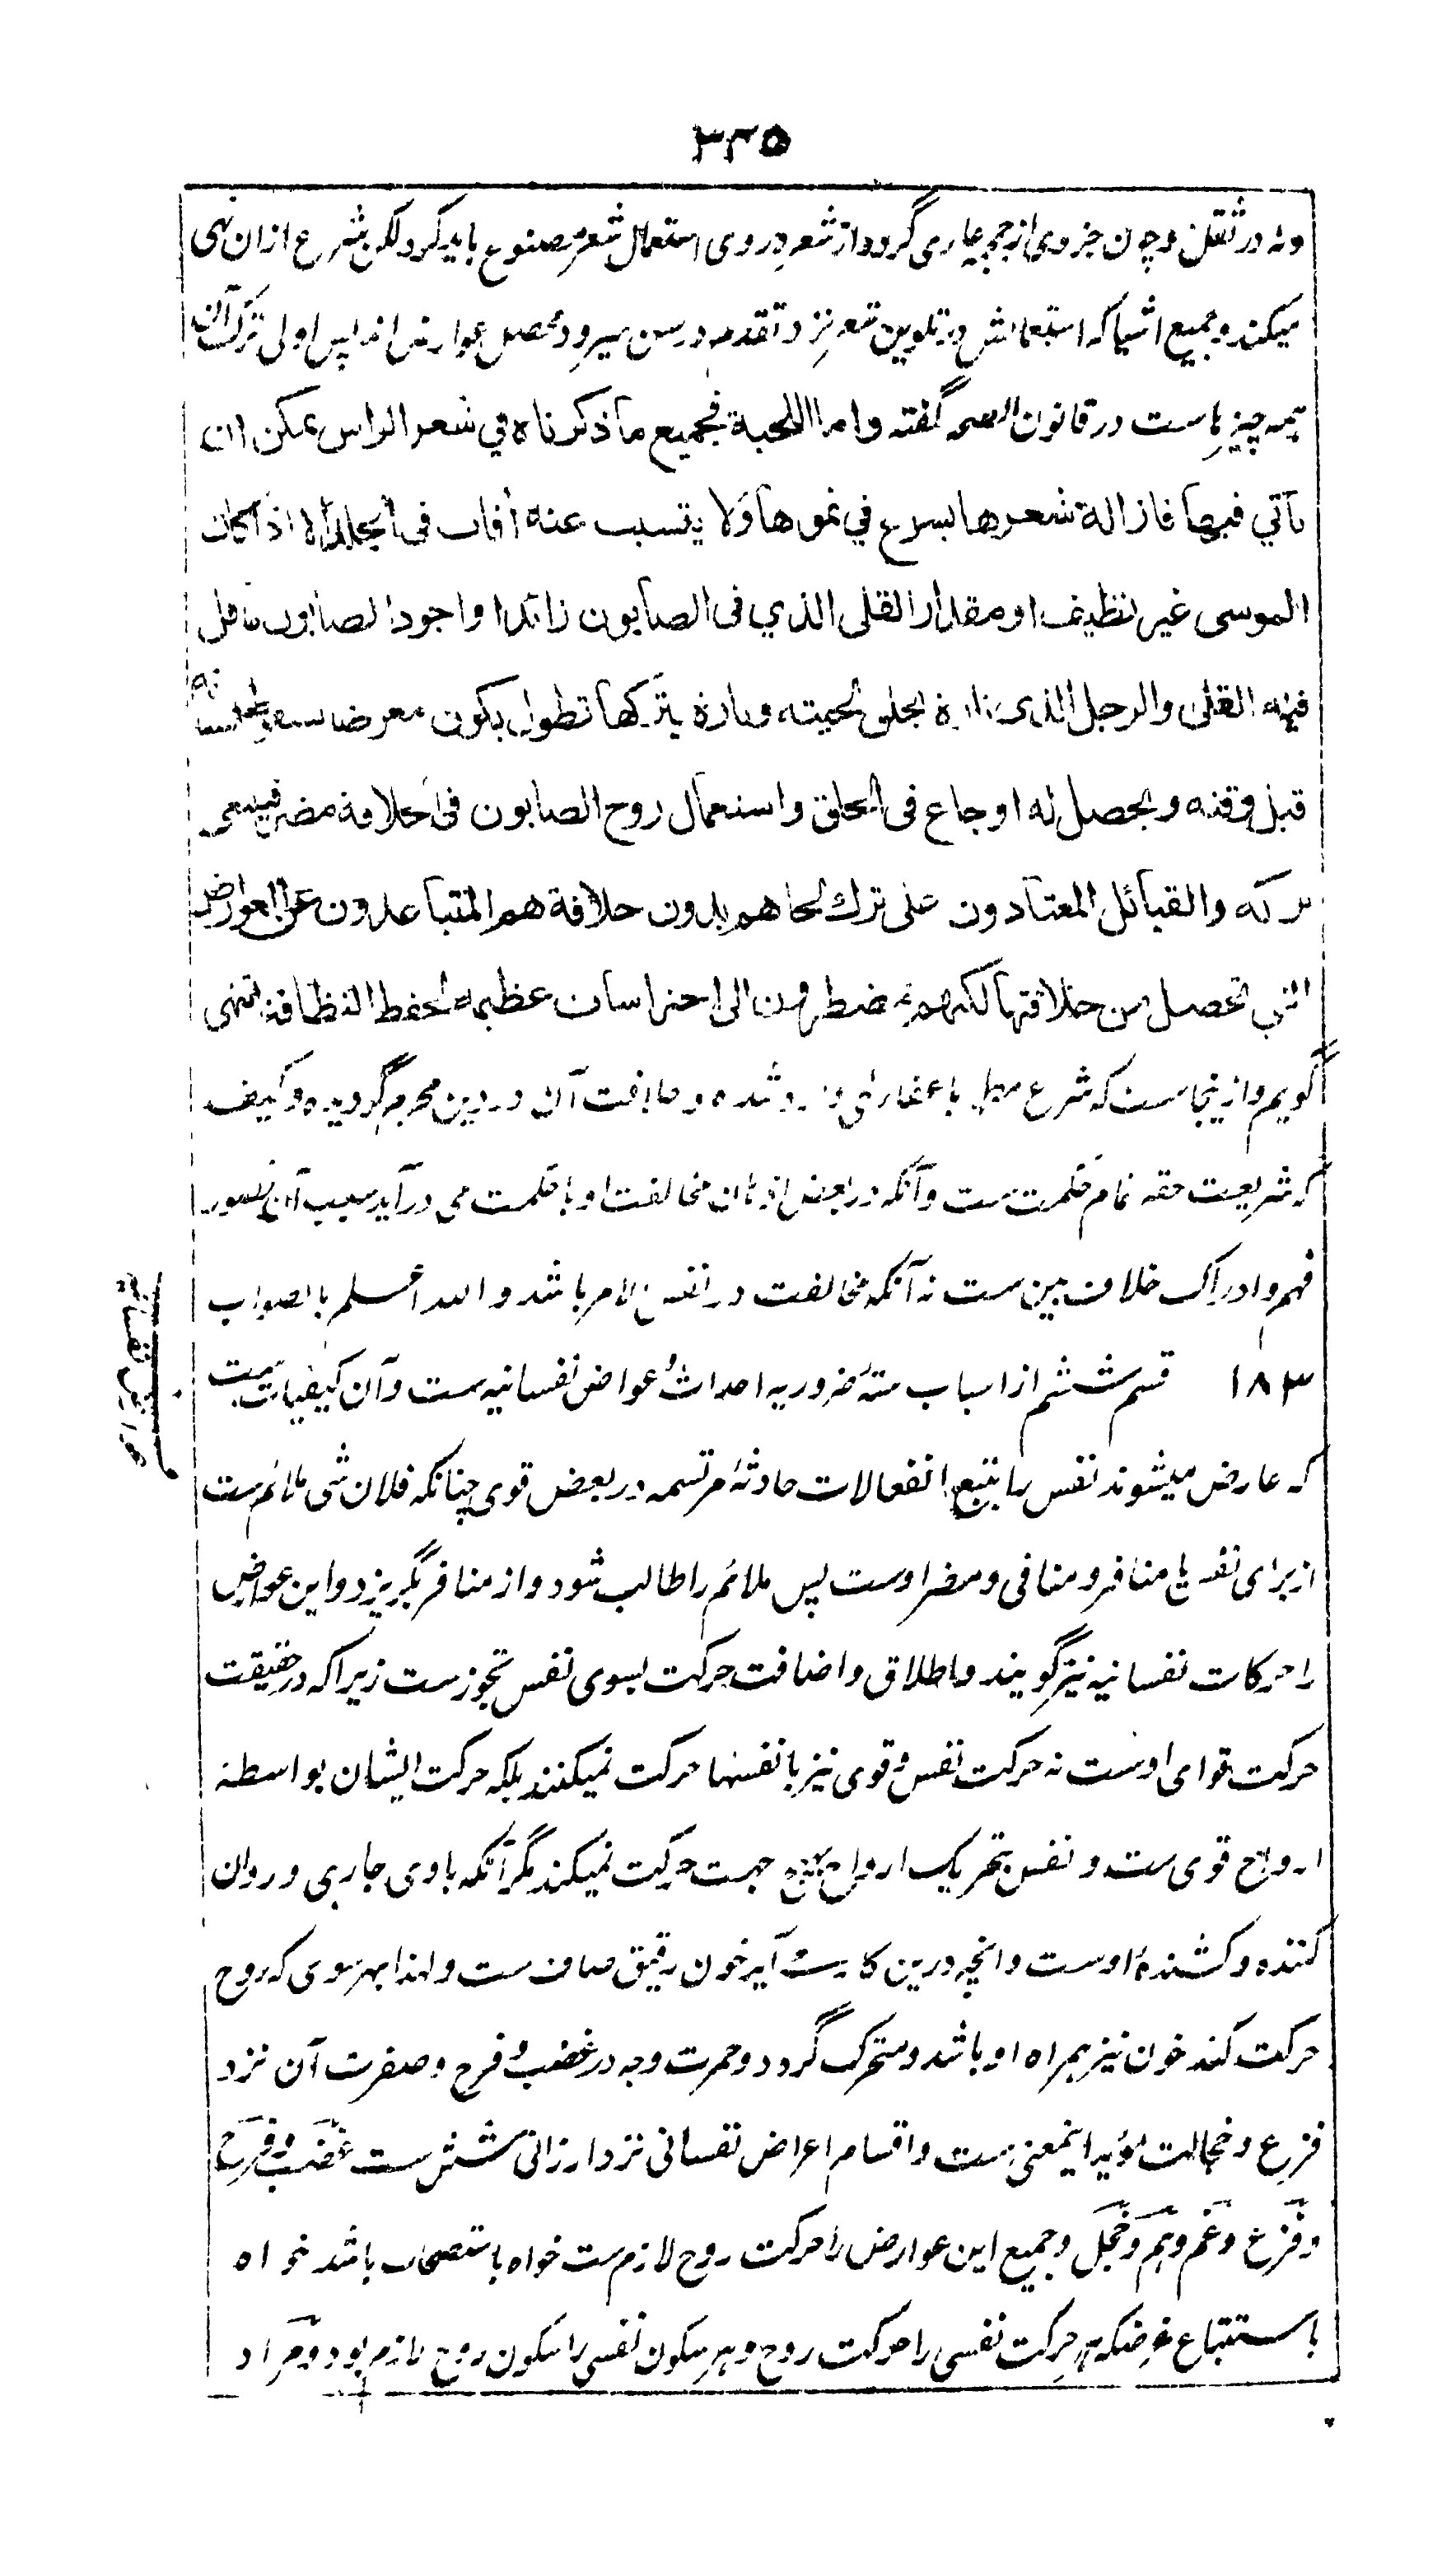 ۳۳۵
و نه در ثقلن و چون جزوی از جمجمه عاری گردد از شعر در وی استعمال شعر مصنوع باید کرد لکن شرع از ان نهی
میکند و جمیع اشیا که استعمالش در تلوین شعر نزد تقدم در سن میرود محصل عوارض اند پس اولی ترک آن
همه چیزهاست در قانون الصحه گفته واما اللحية فجميع ما ذكرناه في شعر الراس يمكن ان
يأتي فيها فازالة شعرها يسرع في نموها ولا يتسبب عنه أفات فى الجلد الا اذا كان
الموسى غير نظيف او مقدار القلى الذي فى الصابون زائدا واجود الصابون ما قل
فيه القلى والرجل الذى تارة يحلق لحيته وتارة يتركها تطول يكون معرضا
قبل وقته ويحصل له اوجاع فى الحلق واستعمال روح الصابون فى الحلاقة مضر فينبغى
تركه والقبائل المعتادون على ترك لحاهم بدون حلاقة هم المتباعدون عن العوارض
التي تحصل من حلاقتها لكنهم مضطرون الى احتراسات عظيمة لحفظ النظافة انتهى
گویم و ازینجاست که شرع مبین باعفاء لحی وارد شده و مخالفت آن در دین محرم گردیده و کیف
که شریعت حقه تمام حکمت ست و آنکه در بعض اذهان مخالفت او با حکمت می درآید سبب آن قصور
فهم و ادراک خلاف بین ست نه آنکه مخالفت در نفس الامر باشد و الله اعلم بالصواب
۱۸۳ قسم ششم از اسباب ستهٔ ضروریه احداث عوارض نفسانیه ست و آن کیفیات ست
عوارض نفسانیه
که عارض میشوند نفس را بتبع انفعالات حادثهٔ مرتسمه در بعض قوی چنانکه فلان شی ملائم ست
از برای نفس یا منافر و منافی و مضر اوست پس ملائم را طالب شود و از منافر بگریزد و این عوارض
را حرکات نفسانیه نیز گویند و اطلاق و اضافت حرکت بسوی نفس تجوز ست زیرا که در حقیقت
حرکت قوای اوست نه حرکت نفس و قوی نیز بانفسها حرکت نمیکنند بلکه حرکت ایشان بواسطهٔ
ارواح قوی ست و نفس بتحریک ارواح بهیچ جهت حرکت نمیکند مگر آنکه با وی جاری و روان
کننده و کشندهٔ اوست و انچه درین کار ست آید خون رقیق صاف ست و لهذا بهر سوی که روح
حرکت کند خون نیز همراه او باشد و متحرک گردد و حمرت وجه در غضب و فرح و صفرت آن نزد
فزع و خجالت مؤید اینمعنی ست و اقسام اعراض نفسانی نزد ارزانی شش ست غضب و فرح
و فزع و غم و هم و خجل و جمیع این عوارض را حرکت روح لازم ست خواه باستصحاب باشد خواه
باستتباع غرضکه هر حرکت نفسی را حرکت روح و هر سکون نفسی را سکون روح لازم بود و مراد